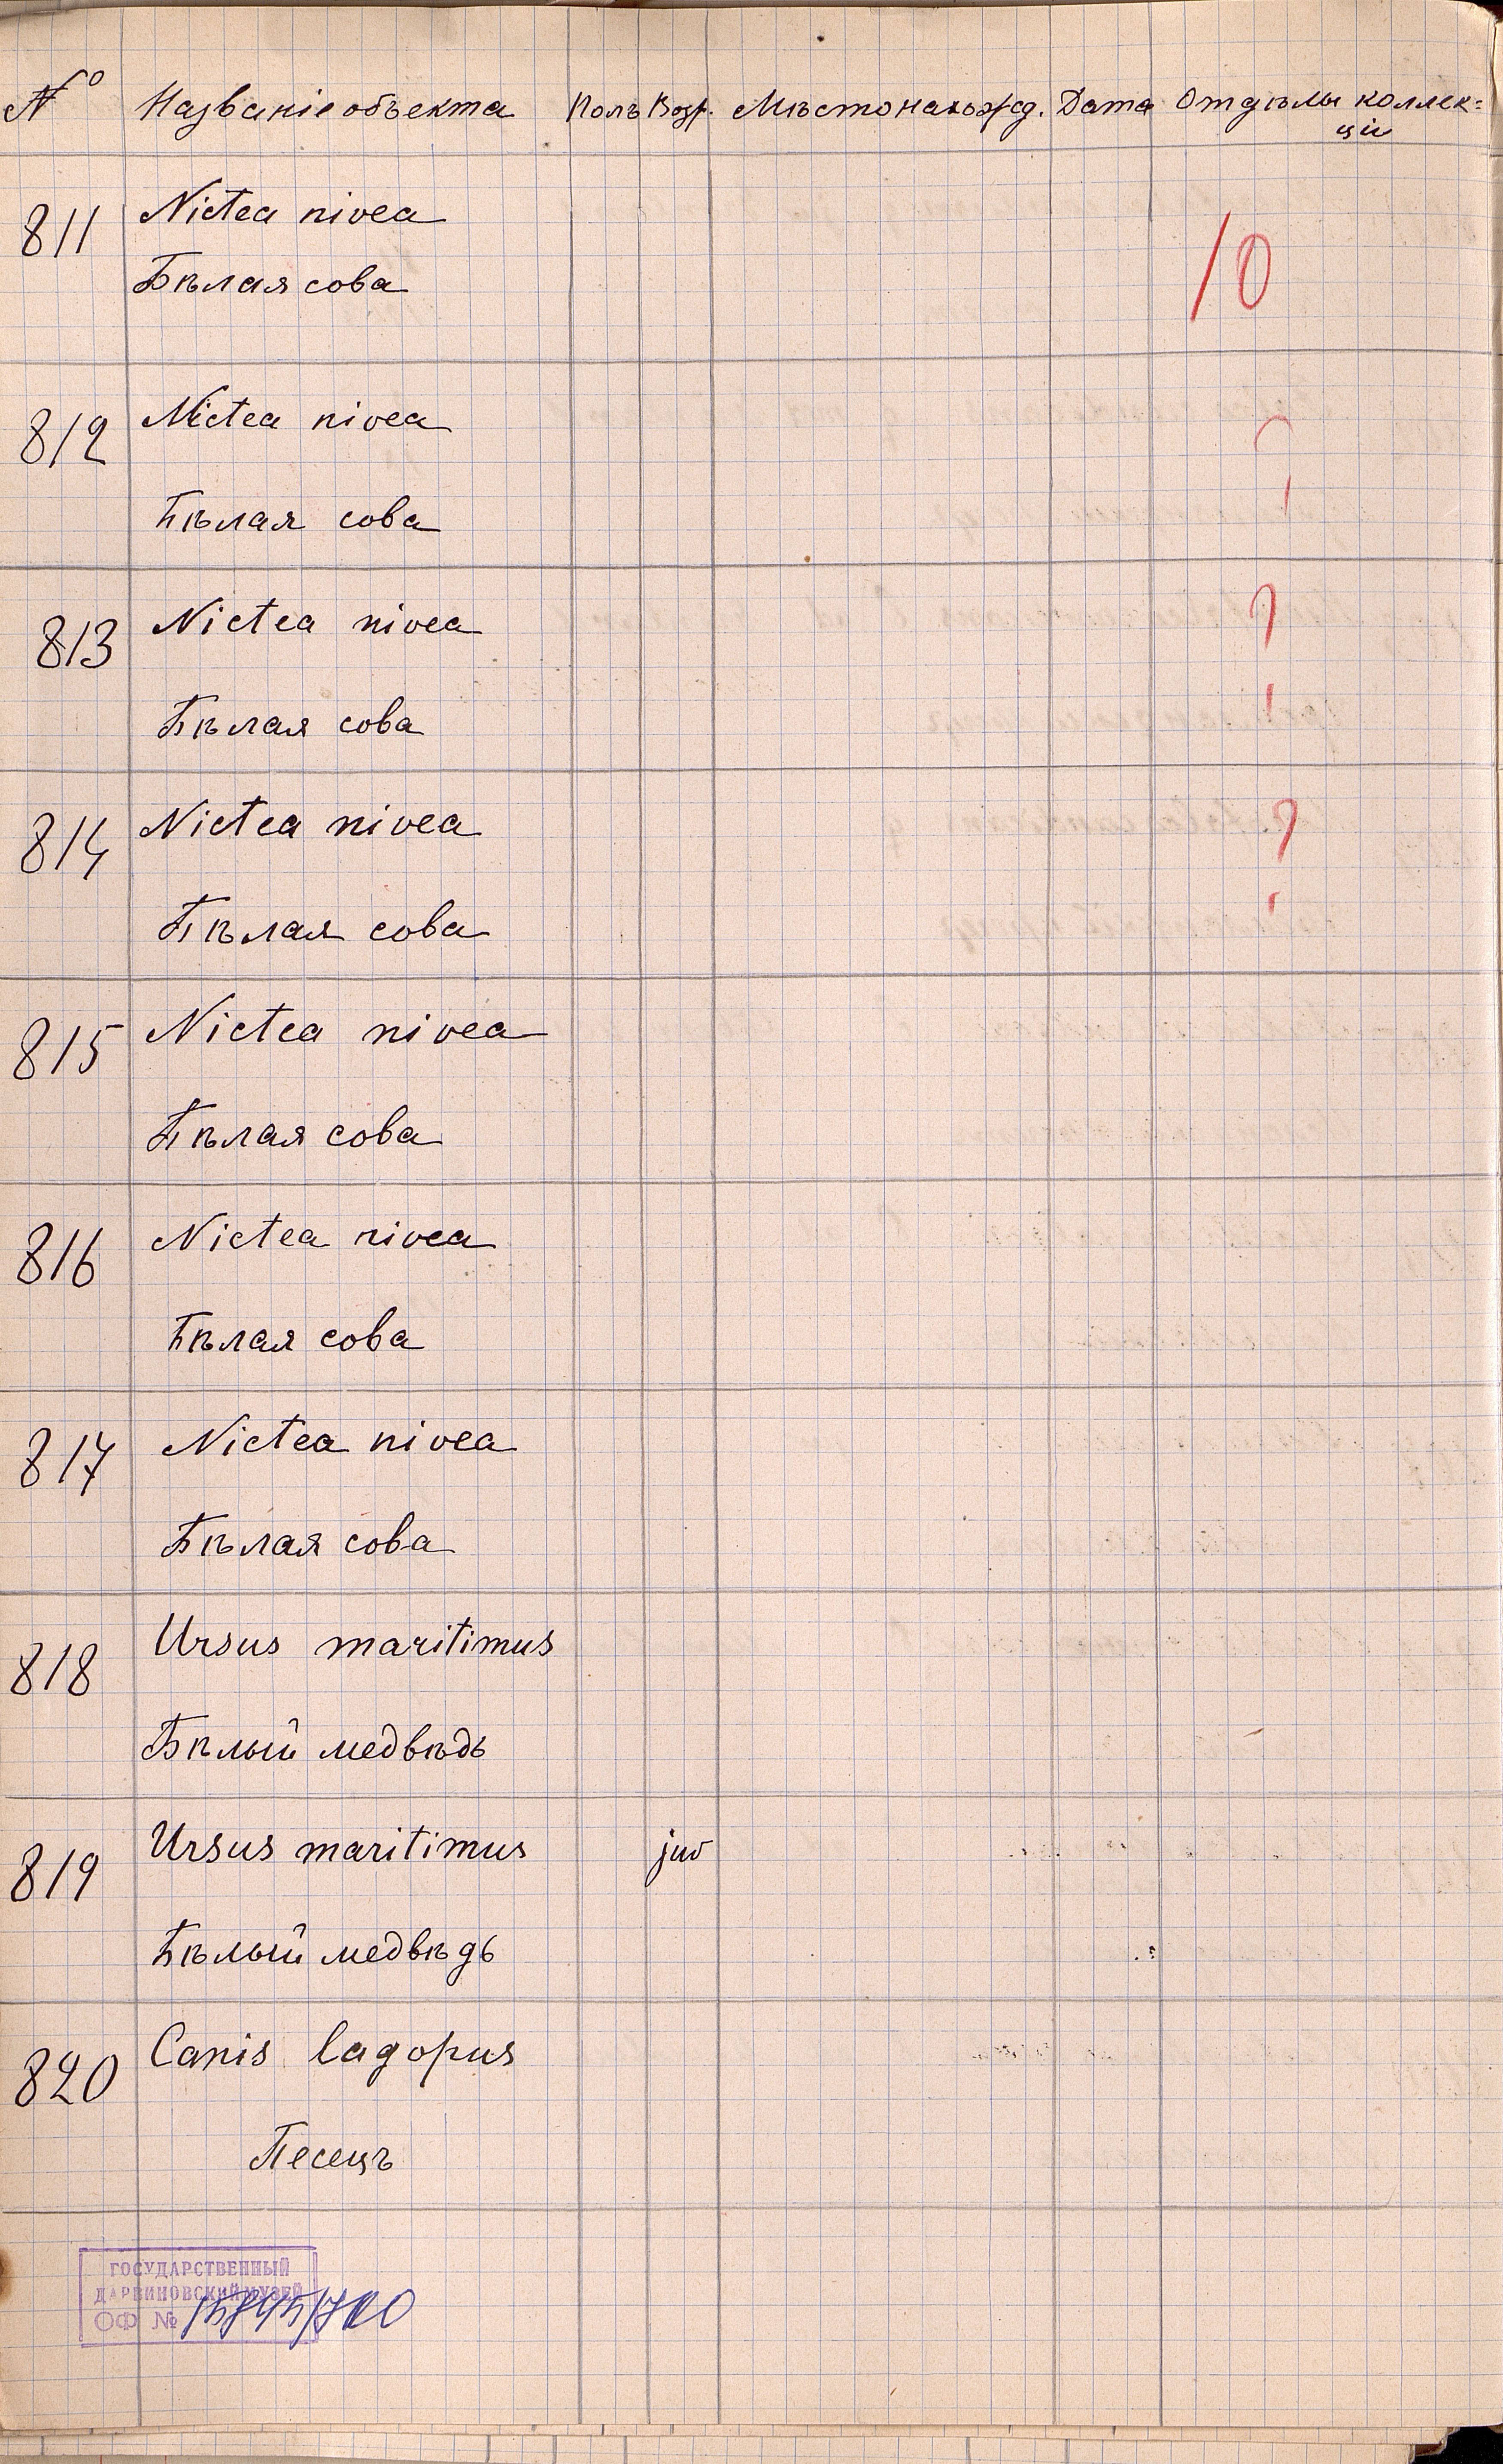 № Названіе объекта Полъ Возр. Мѣстонахожд. Дата Отдѣлы коллек=
ціи
811 Nictea nivea
Бѣлая сова
10
812 Nictea nivea
?
Бѣлая сова
813 Nictea nivea
?
Бѣлая сова
814 Nictea nivea
?
Бѣлая сова
815 Nictea nivea
Бѣлая сова
816 Nictea nivea
Бѣлая сова
817 Nictea nivea
Бѣлая сова
818 Ursus maritimus
Бѣлый медвѣдь
819 Ursus maritimus juv
Бѣлый медвѣдь
820 Canis lagopus
Песецъ
ГОСУДАРСТВЕННЫЙ
ДАРВИНОВСКИЙ МУЗЕЙ
ОФ №